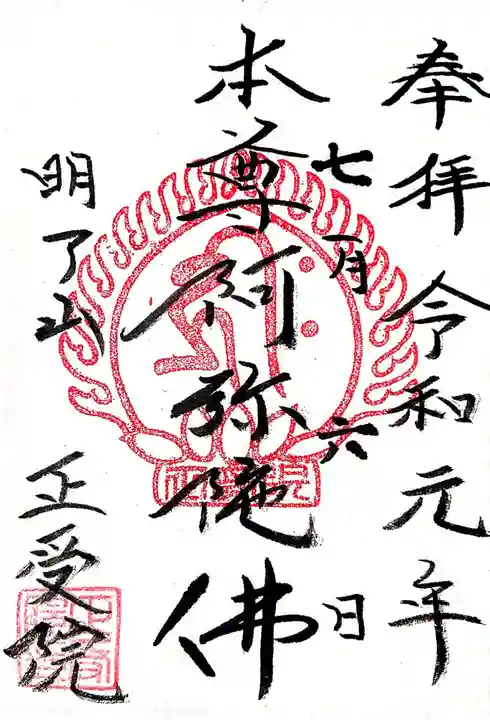 奉拝 令和元年
七月六日
本尊阿弥陀佛
明了山
正受院